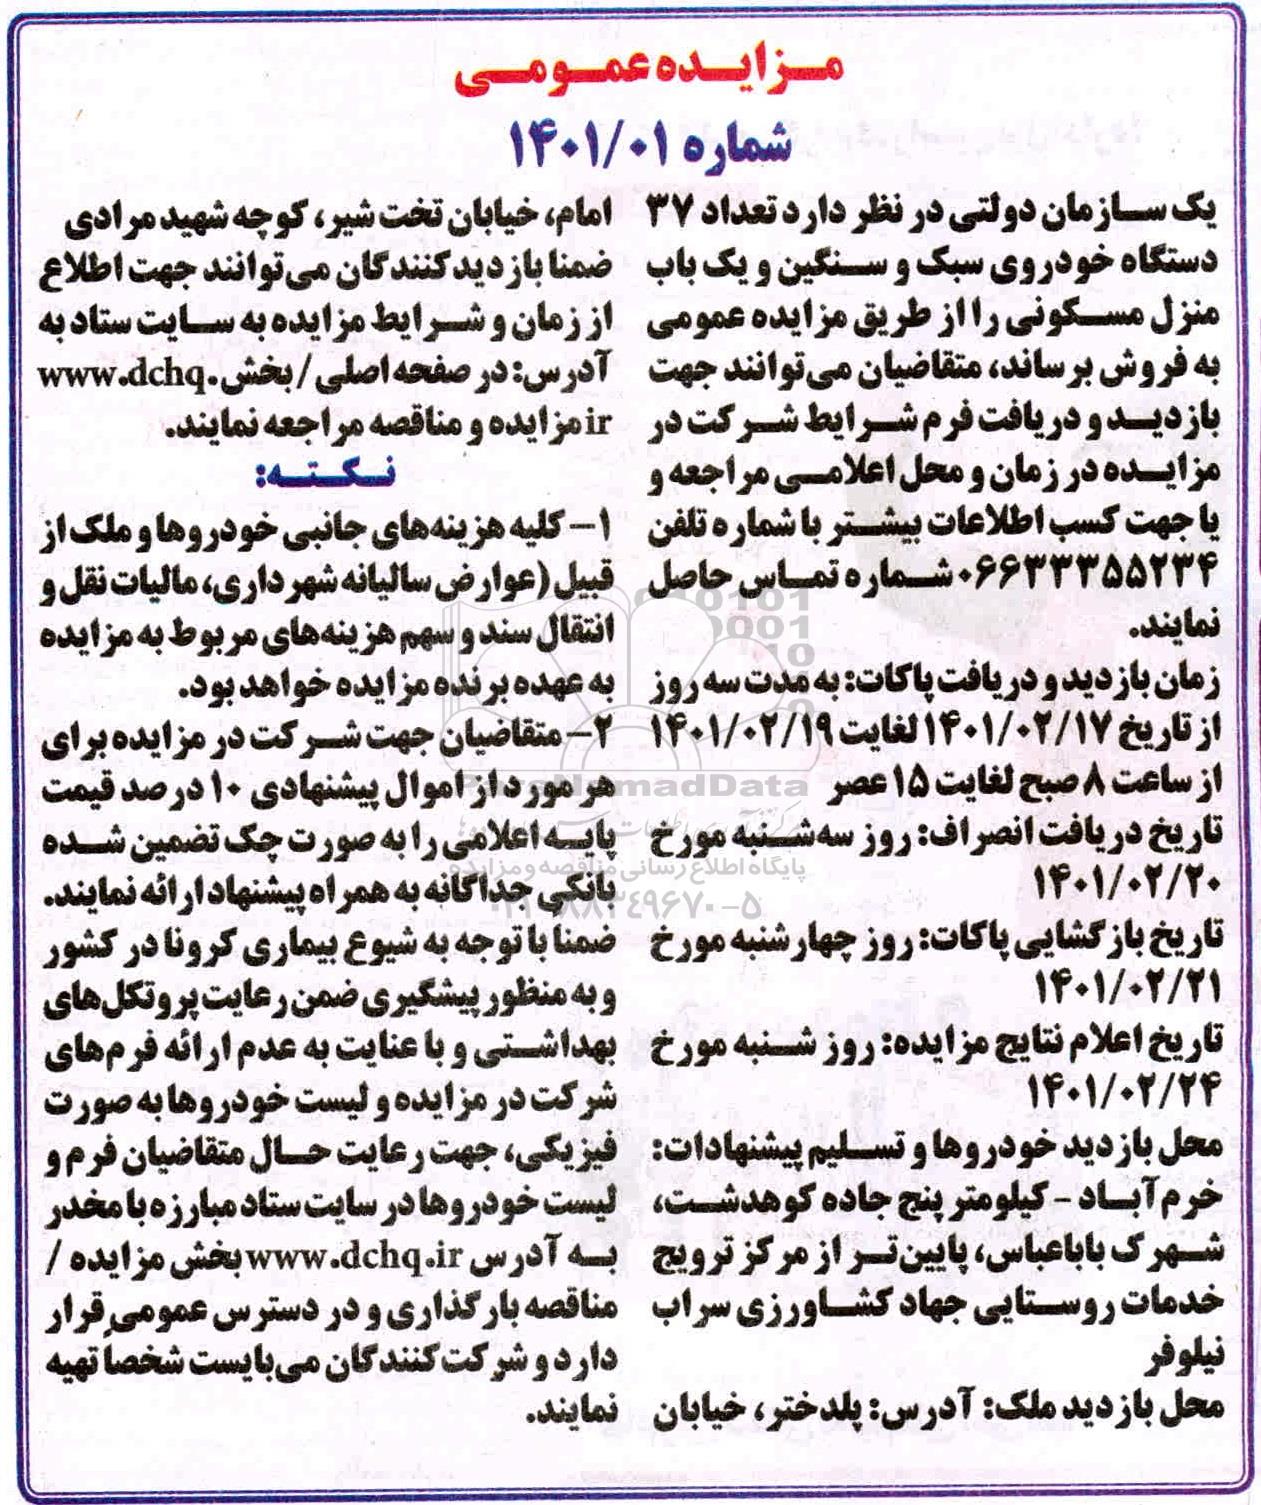 مزایده عمومی
شماره ۱۴۰۱/۰۱
یک سازمان دولتی در نظر دارد تعداد ۳۷
دستگاه خودروی سبک و سنگین و یک باب
منزل مسکونی را از طریق مزایده عمومی
به فروش برساند، متقاضیان می‌توانند جهت
بازدید و دریافت فرم شرایط شرکت در
مزایده در زمان و محل اعلامی مراجعه و
یا جهت کسب اطلاعات بیشتر با شماره تلفن
۰۶۶۳۳۳۵۵۲۳۴ شماره تماس حاصل
نمایند.
زمان بازدید و دریافت پاکات: به مدت سه روز
از تاریخ ۱۴۰۱/۰۲/۱۷ لغایت ۱۴۰۱/۰۲/۱۹
از ساعت ۸ صبح لغایت ۱۵ عصر
تاریخ دریافت انصراف: روز سه‌شنبه مورخ
۱۴۰۱/۰۲/۲۰
تاریخ بازگشایی پاکات: روز چهارشنبه مورخ
۱۴۰۱/۰۲/۲۱
تاریخ اعلام نتایج مزایده: روز شنبه مورخ
۱۴۰۱/۰۲/۲۴
محل بازدید خودروها و تسلیم پیشنهادات:
خرم‌آباد - کیلومتر پنج جاده کوهدشت،
شهرک باباعباس، پایین‌تر از مرکز ترویج
خدمات روستایی جهاد کشاورزی سراب
نیلوفر
محل بازدید ملک: آدرس: پلدختر، خیابان
امام، خیابان تخت شیر، کوچه شهید مرادی
ضمنا بازدیدکنندگان می‌توانند جهت اطلاع
از زمان و شرایط مزایده به سایت ستاد به
آدرس: در صفحه اصلی / بخش www.dchq.
ir مزایده و مناقصه مراجعه نمایند.
نکته:
۱- کلیه هزینه‌های جانبی خودروها و ملک از
قبیل (عوارض سالیانه شهرداری، مالیات نقل و
انتقال سند و سهم هزینه‌های مربوط به مزایده
به عهده برنده مزایده خواهد بود.
۲- متقاضیان جهت شرکت در مزایده برای
هر مورد از اموال پیشنهادی ۱۰ درصد قیمت
پایه اعلامی را به صورت چک تضمین شده
بانکی جداگانه به همراه پیشنهاد ارائه نمایند.
ضمناً با توجه به شیوع بیماری کرونا در کشور
و به منظور پیشگیری ضمن رعایت پروتکل‌های
بهداشتی و با عنایت به عدم ارائه فرم‌های
شرکت در مزایده و لیست خودروها به صورت
فیزیکی، جهت رعایت حال متقاضیان فرم و
لیست خودروها در سایت ستاد مبارزه با مخدر
به آدرس www.dchq.ir بخش مزایده /
مناقصه بارگذاری و در دسترس عمومی قرار
دارد و شرکت‌کنندگان می‌بایست شخصاً تهیه
نمایند.
ParsNamadData
پایگاه اطلاع رسانی مناقصه و مزایده
۰۲۱-۸۸۳۴۹۶۷۰-۵